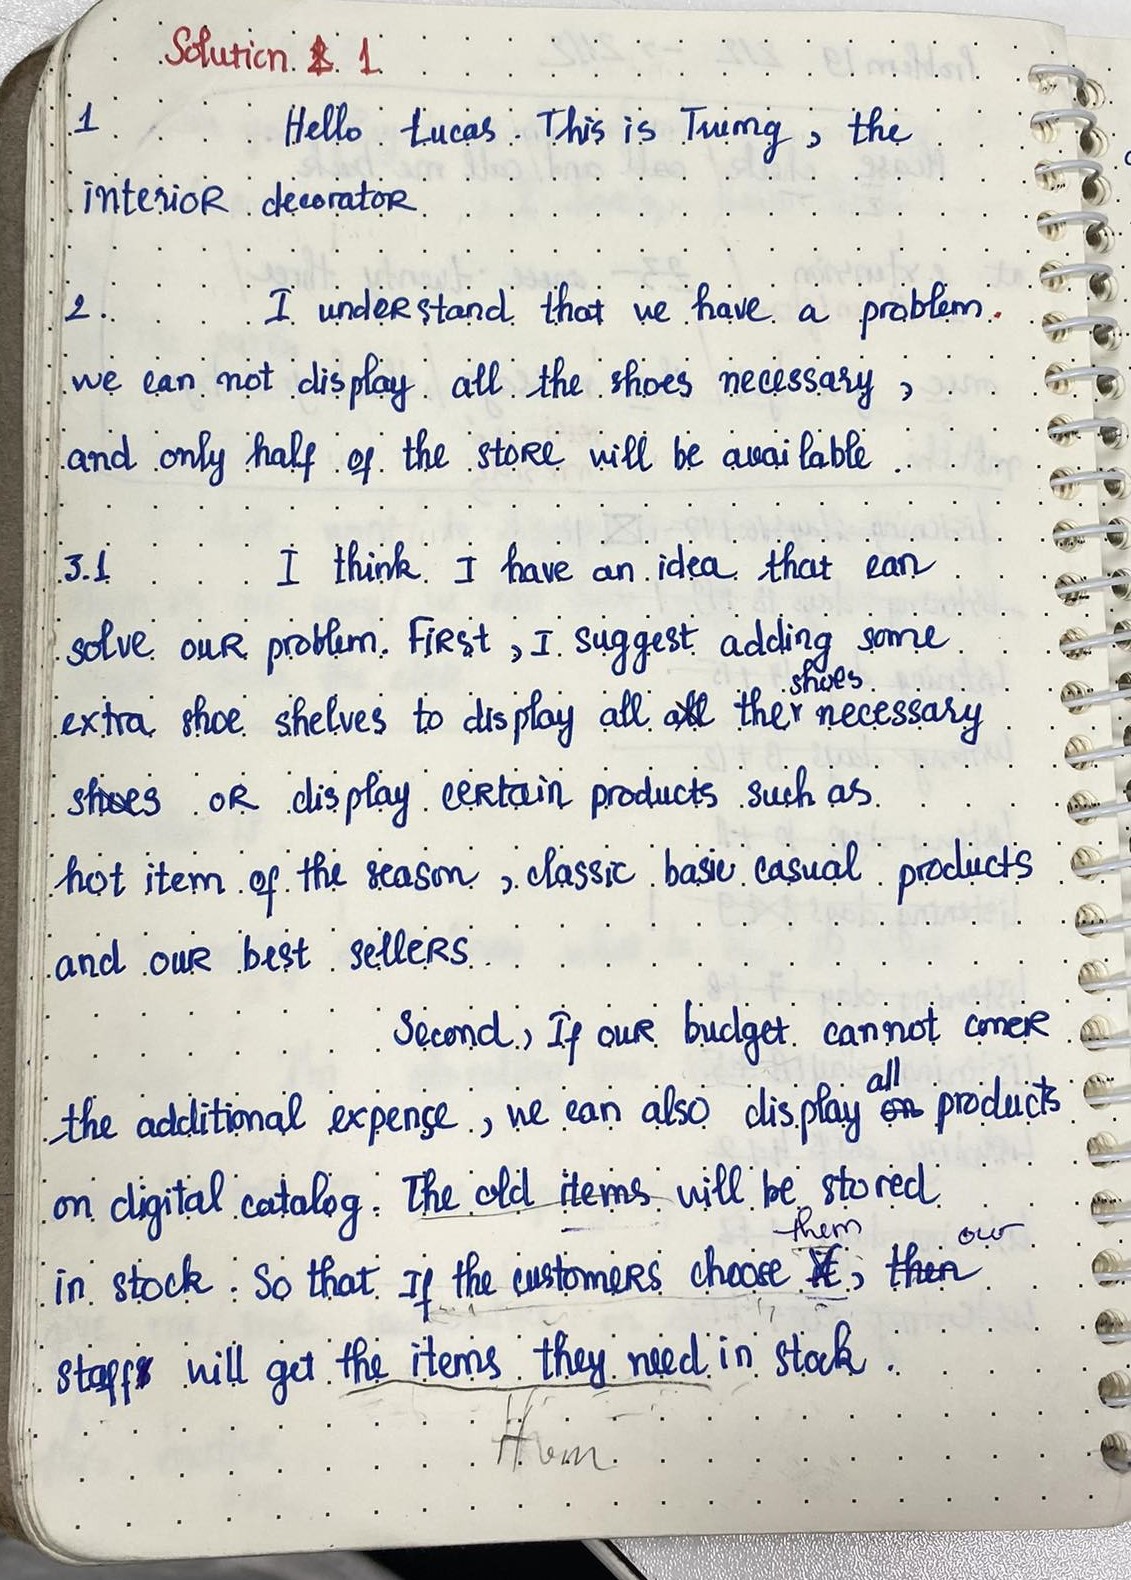 Solution 1
1 Hello Lucas. This is Trung, the
interior decorator
2. I understand that we have a problem.
we can not display all the shoes necessary,
and only half of the store will be available.
3.1 I think I have an idea that can
solve our problem. First, I suggest adding some
shoes
extra shoe shelves to display all the necessary
shoes or display certain products such as
hot item of the season, classic basic casual products
and our best sellers
Second, If our budget cannot cover
all
the additional expense, we can also display products
on digital catalog. The old items will be stored
them our
in stock. So that If the customers choose, then
staff will get the items they need in stock.